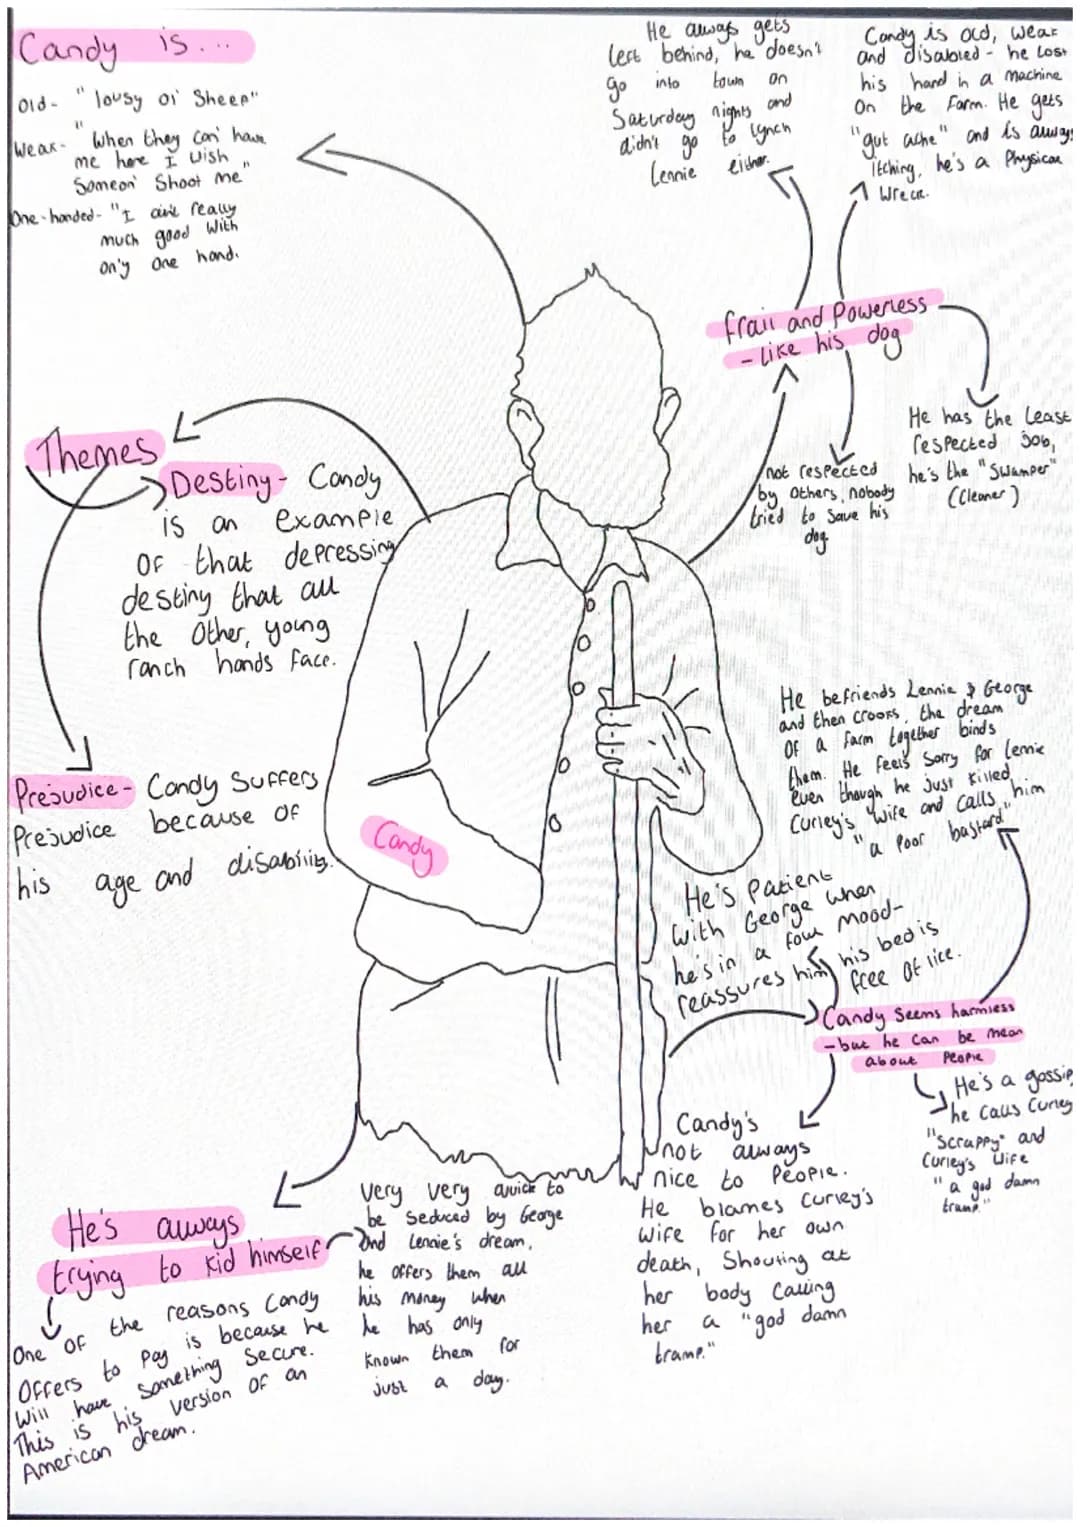 Candy is...
old - "lousy ol' Sheep"
Weak - "When they can' have
me here I wish
Someon' Shoot me"
One-handed - "I ain't really
much good with
on'y one hand.
He always gets
left behind, he doesn't
go into town on
Saturday nights and
didn't go to lynch
Lennie either.
Candy is old, weak
and disabled - he lost
his hand in a machine
on the farm. He gets
"gut ache" and is always
itching, he's a Physical
Wreck.
frail and Powerless
- like his dog
He has the least
respected job,
he's the "Swamper"
(Cleaner)
not respected
by others, nobody
tried to save his
dog.
Themes
Destiny - Candy
is an example
of that depressing
destiny that all
the other, young
ranch hands face.
Prejudice - Candy Suffers
Prejudice because of
his age and disability.
Candy
He befriends Lennie & George
and then crooks, the dream
of a farm together binds
them. He feels sorry for Lennie
even though he just killed
Curley's wife and calls him
"a poor bastard"
He's Patient
with George when
he's in a foul mood -
reassures him his bed is
free of lice.
Candy Seems harmless
- but he can be mean
about People
He's a gossip,
he calls Curley
"Scrappy" and
Curley's Wife
"a god damn
tramp."
Candy's
not always
nice to People.
He blames Curley's
wife for her own
death, Shouting at
her body Calling
her a "god damn
tramp."
He's always
trying to kid himself
Very very quick to
be seduced by George
and Lennie's dream,
he offers them all
his money when
he has only
known them for
just a day.
One of the reasons Candy
Offers to Pay is because he
Will have something Secure.
This is his version of an
American dream.